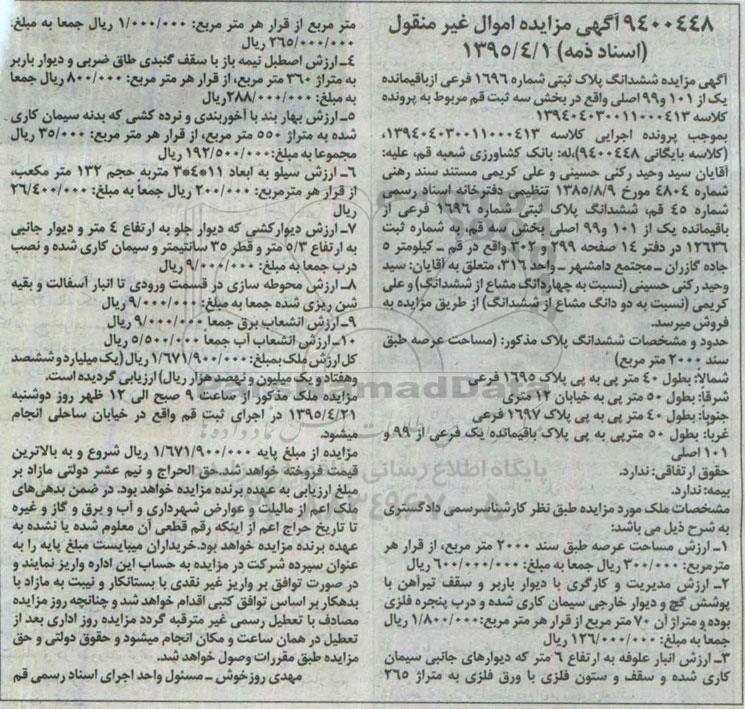 ۹۴۰۰۴۴۸ آگهی مزایده اموال غیر منقول
(اسناد ذمه) ۱۳۹۵/۴/۱
آگهی مزایده ششدانگ پلاک ثبتی شماره ۱۶۹۶ فرعی ازباقیمانده
یک از ۱۰۱ و۹۹ اصلی واقع در بخش سه ثبت قم مربوط به پرونده
کلاسه ۱۳۹۴۰۴۰۳۰۰۱۱۰۰۰۴۱۳
بموجب پرونده اجرایی کلاسه ۱۳۹۴۰۴۰۳۰۰۱۱۰۰۰۴۱۳،
(کلاسه بایگانی ۹۴۰۰۴۴۸)،له: بانک کشاورزی شعبه قم، علیه:
آقایان سید وحید رکنی حسینی و علی کریمی مستند سند رهنی
شماره ۴۸۰۴ مورخ ۱۳۸۵/۸/۹ تنظیمی دفترخانه اسناد رسمی
شماره ۴۵ قم، ششدانگ پلاک ثبتی شماره ۱۶۹۶ فرعی از
باقیمانده یک از ۱۰۱ و۹۹ اصلی بخش سه قم، به شماره ثبت
۱۲۶۳۶ در دفتر ۱۴ صفحه ۲۹۹ و ۳۰۲ واقع در قم ـ کیلومتر ۵
جاده گازران ـ مجتمع دامشهر ـ واحد ۳۱۶، متعلق به آقایان: سید
وحید رکنی حسینی (نسبت به چهاردانگ مشاع از ششدانگ) و علی
کریمی (نسبت به دو دانگ مشاع از ششدانگ) از طریق مزایده به
فروش میرسد.
حدود و مشخصات ششدانگ پلاک مذکور: (مساحت عرصه طبق
سند ۲۰۰۰ متر مربع)
شمالا: بطول ۴۰ متر پی به پی پلاک ۱۶۹۵ فرعی
شرقا: بطول ۵۰ متر پی به خیابان ۱۲ متری
جنوبا: بطول ۴۰ متر پی به پی پلاک ۱۶۹۷ فرعی
غربا: بطول ۵۰ مترپی به پی پلاک باقیمانده یک فرعی از ۹۹ و
۱۰۱ اصلی
حقوق ارتفاقی: ندارد.
بیمه: ندارد.
مشخصات ملک مورد مزایده طبق نظر کارشناسرسمی دادگستری
به شرح ذیل می باشد:
۱ـ ارزش مساحت عرصه طبق سند ۲۰۰۰ متر مربع، از قرار هر
مترمربع: ۳۰۰/۰۰۰ ریال جمعا به مبلغ: ۶۰۰/۰۰۰/۰۰۰ ریال
۲ـ ارزش مدیریت و کارگری با دیوار باربر و سقف تیرآهن با
پوشش گچ و دیوار خارجی سیمان کاری شده و درب پنجره فلزی
بوده و متراژ آن ۷۰ متر مربع از قرار هر متر مربع: ۱/۸۰۰/۰۰۰ ریال
جمعا به مبلغ: ۱۲۶/۰۰۰/۰۰۰ ریال
۳ـ ارزش انبار علوفه به ارتفاع ۶ متر که دیوارهای جانبی سیمان
کاری شده و سقف و ستون فلزی با ورق فلزی به متراژ ۲۶۵
متر مربع از قرار هر متر مربع: ۱/۰۰۰/۰۰۰ ریال جمعا به مبلغ:
۲۶۵/۰۰۰/۰۰۰ ریال
۴ـ ارزش اصطبل نیمه باز با سقف گنبدی طاق ضربی و دیوار باربر
به متراژ ۳۶۰ متر مربع، از قرار هر متر مربع: ۸۰۰/۰۰۰ ریال جمعا
به مبلغ: ۲۸۸/۰۰۰/۰۰۰ریال
۵ـ ارزش بهار بند با آخوربندی و نرده کشی که بدنه سیمان کاری
شده به متراژ ۵۵۰ متر مربع، از قرار هر متر مربع: ۳۵/۰۰۰ ریال
مجموعا به مبلغ: ۱۹۲/۵۰۰/۰۰۰ ریال
۶ـ ارزش سیلو به ابعاد ۱۱*۴*۳ متربه حجم ۱۳۲ متر مکعب،
از قرار هر مترمربع: ۲۰۰/۰۰۰ ریال جمعاً به مبلغ: ۲۶/۴۰۰/۰۰۰
ریال
۷ـ ارزش دیوارکشی که دیوار جلو به ارتفاع ۴ متر و دیوار جانبی
به ارتفاع ۵/۳ متر و قطر ۳۵ سانتیمتر و سیمان کاری شده و نصب
درب جمعا به مبلغ: ۹/۰۰۰/۰۰۰ ریال
۸ـ ارزش محوطه سازی در قسمت ورودی تا انبار آسفالت و بقیه
شن ریزی شده جمعا به مبلغ: ۹/۰۰۰/۰۰۰ ریال
۹ـ ارزش انشعاب برق جمعا ۹/۰۰۰/۰۰۰ ریال
۱۰ـ ارزش انشعاب آب جمعاً ۵/۵۰۰/۰۰۰ ریال
کل ارزش ملک بمبلغ: ۱/۶۷۱/۹۰۰/۰۰۰ ریال (یک میلیارد و ششصد
وهفتاد و یک میلیون و نهصد هزار ریال) ارزیابی گردیده است.
مزایده ملک مذکور از ساعت ۹ صبح الی ۱۲ ظهر روز دوشنبه
۱۳۹۵/۴/۲۱ در اجرای ثبت قم واقع در خیابان ساحلی انجام
میشود.
مزایده از مبلغ پایه ۱/۶۷۱/۹۰۰/۰۰۰ ریال شروع و به بالاترین
قیمت فروخته خواهد شد.حق الحراج و نیم عشر دولتی مازاد بر
مبلغ ارزیابی به عهده برنده مزایده خواهد بود. در ضمن بدهی‌های
ملک اعم از مالیات و عوارض شهرداری و آب و برق و گاز و غیره
تا تاریخ حراج اعم از اینکه رقم قطعی آن معلوم شده یا نشده به
عهده برنده مزایده خواهد بود.خریداران میبایست مبلغ پایه را به
عنوان سپرده شرکت در مزایده به حساب این اداره واریز نمایند و
در صورت توافق بر واریز غیر نقدی با بستانکار و نیبت به مازاد با
بدهکار بر اساس توافق کتبی اقدام خواهد شد و چنانچه روز مزایده
مصادف با تعطیل رسمی غیر مترقبه گردد مزایده روز اداری بعد از
تعطیل در همان ساعت و مکان انجام میشود و حقوق دولتی و حق
مزایده طبق مقررات وصول خواهد شد.
مهدی روزخوش ـ مسئول واحد اجرای اسناد رسمی قم